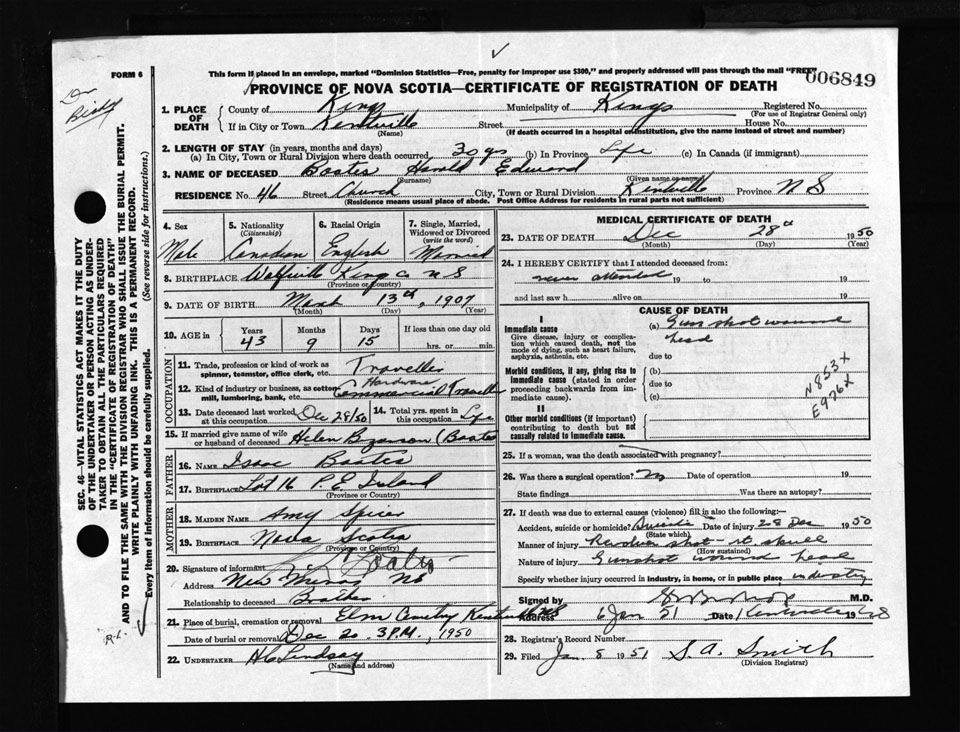 FORM 6
This form if placed in an envelope, marked "Dominion Statistics—Free, penalty for improper use $300," and properly addressed will pass through the mail "FREE"
006849
PROVINCE OF NOVA SCOTIA—CERTIFICATE OF REGISTRATION OF DEATH
Dr
1. PLACE OF DEATH County of Kings Municipality of Kings Registered No.
(For use of Registrar General only)
If in City or Town Kentville Street House No.
(Name) (If death occurred in a hospital or institution, give the name instead of street and number)
2. LENGTH OF STAY (in years, months and days)
(a) In City, Town or Rural Division where death occurred 30 yrs (b) In Province Life (c) In Canada (if immigrant)
3. NAME OF DECEASED Boates Harold Edward
(Surname) (Given name or name)
RESIDENCE NO. 46 Street Church City, Town or Rural Division Kentville Province N S
(Residence means usual place of abode. Post Office Address for residents in rural parts not sufficient)
4. Sex
Male
5. Nationality
(Citizenship)
Canadian
6. Racial Origin
English
7. Single, Married, Widowed or Divorced
(write the word)
Married
8. BIRTHPLACE Wolfville Kings Co N S
(Province or Country)
9. DATE OF BIRTH March 13th, 1907
(Month) (Day) (Year)
10. AGE in Years Months Days If less than one day old
43 9 15 hrs. or min.
OCCUPATION
11. Trade, profession or kind of work as spinner, teamster, office clerk, etc. Traveller
12. Kind of industry or business, as cotton mill, lumbering, bank, etc. Hardware
Commercial Traveller
13. Date deceased last worked at this occupation Dec 28/50
14. Total yrs. spent in this occupation Life
15. If married give name of wife or husband of deceased Helen Bezanson (Boates
FATHER
16. NAME Isaac Boates
17. BIRTHPLACE Lot 16 P.E. Island
(Province or Country)
MOTHER
18. MAIDEN NAME Amy Spicer
19. BIRTHPLACE Nova Scotia
(Province or Country)
20. Signature of informant Boates
Address New Minas NS
Relationship to deceased Brother
21. Place of burial, cremation or removal Elm Cemetry Kentville NS
Date of burial or removal Dec 20. 3 P.M., 1950
22. UNDERTAKER H C Lindsay
(Name and address)
MEDICAL CERTIFICATE OF DEATH
23. DATE OF DEATH Dec 28th 1950
(Month) (Day) (Year)
24. I HEREBY CERTIFY that I attended deceased from:
never attended 19 to 19
and last saw h alive on 19
CAUSE OF DEATH
I
Immediate cause
Give disease, injury or complication which caused death, not the mode of dying, such as heart failure, asphyxia, asthenia, etc.
(a) Gun shot wound
head
due to
Morbid conditions, if any, giving rise to immediate cause (stated in order proceeding backwards from immediate cause).
(b)
due to
(c)
N853X
E976X
II
Other morbid conditions (if important) contributing to death but not causally related to immediate cause
25. If a woman, was the death associated with pregnancy?
26. Was there a surgical operation? no Date of operation 19
State findings Was there an autopsy?
27. If death was due to external causes (violence) fill in also the following:—
Accident, suicide or homicide? Suicide Date of injury 28 Dec 1950
(State which)
Manner of injury Revolver shot - rt skull
(How sustained)
Nature of injury Gunshot wound head
Specify whether injury occurred in industry, in home, or in public place industry
Signed by M.D.
Date
28. Registrar's Record Number
29. Filed Jan. 8 1951 S. A. Smith
(Division Registrar)
SEC. 46—VITAL STATISTICS ACT MAKES IT THE DUTY OF THE UNDERTAKER OR PERSON ACTING AS UNDERTAKER TO OBTAIN ALL THE PARTICULARS REQUIRED IN THE "CERTIFICATE OF REGISTRATION OF DEATH" AND TO FILE THE SAME WITH THE DIVISION REGISTRAR WHO SHALL ISSUE THE BURIAL PERMIT.
WRITE PLAINLY WITH UNFADING INK. THIS IS A PERMANENT RECORD.
Every item of information should be carefully supplied. (See reverse side for instructions.)